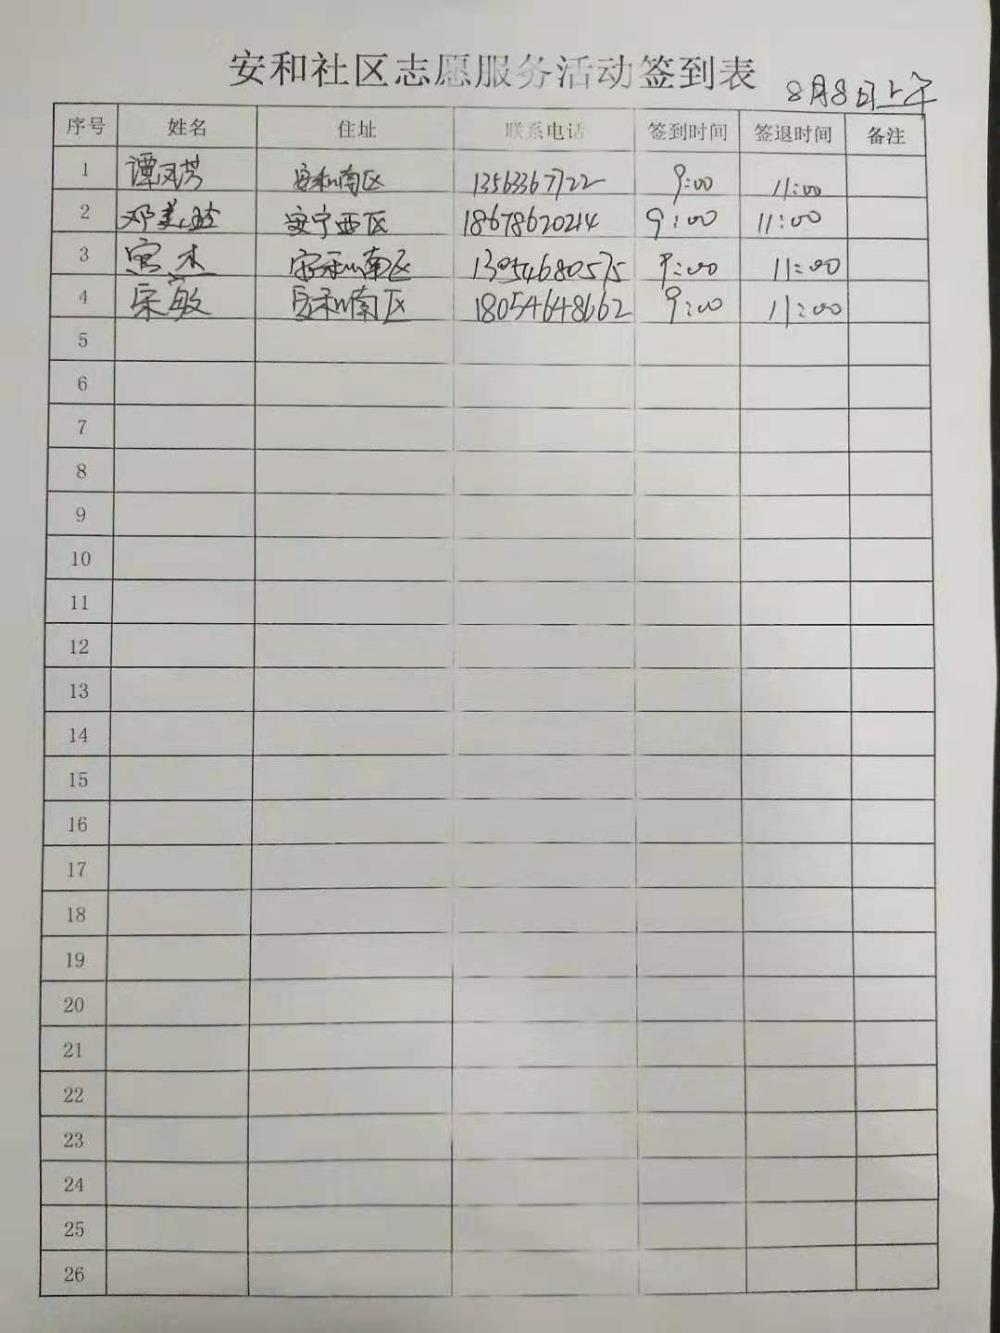 安和社区志愿服务活动签到表
8月8日上午
序号 姓名 住址 联系电话 签到时间 签退时间 备注
1 谭风芳 安和南区 13563367722 9:00 11:00
2 邓美玲 安宁西区 18678620214 9:00 11:00
3 安和南区 13054680575 9:00 11:00
4 宋敏 安和南区 18054648662 9:00 11:00
5
6
7
8
9
10
11
12
13
14
15
16
17
18
19
20
21
22
23
24
25
26